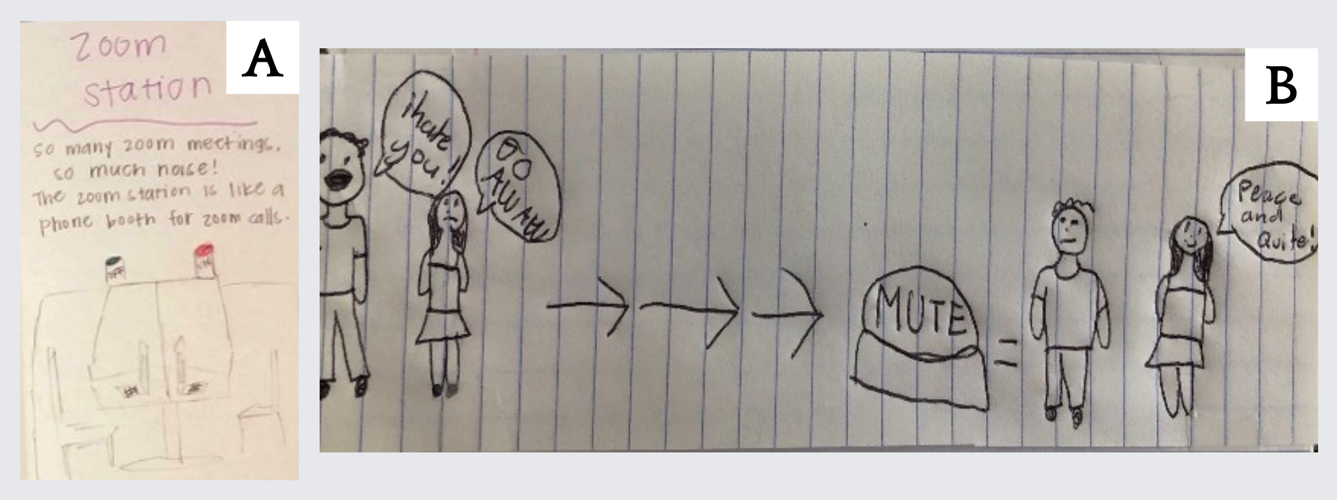 Zoom
station
A
so many zoom meetings,
so much noise!
The zoom station is like a
phone booth for zoom calls.
OFF
ON
B
i hate
you!
MUTE
=
Peace
and
Quite!